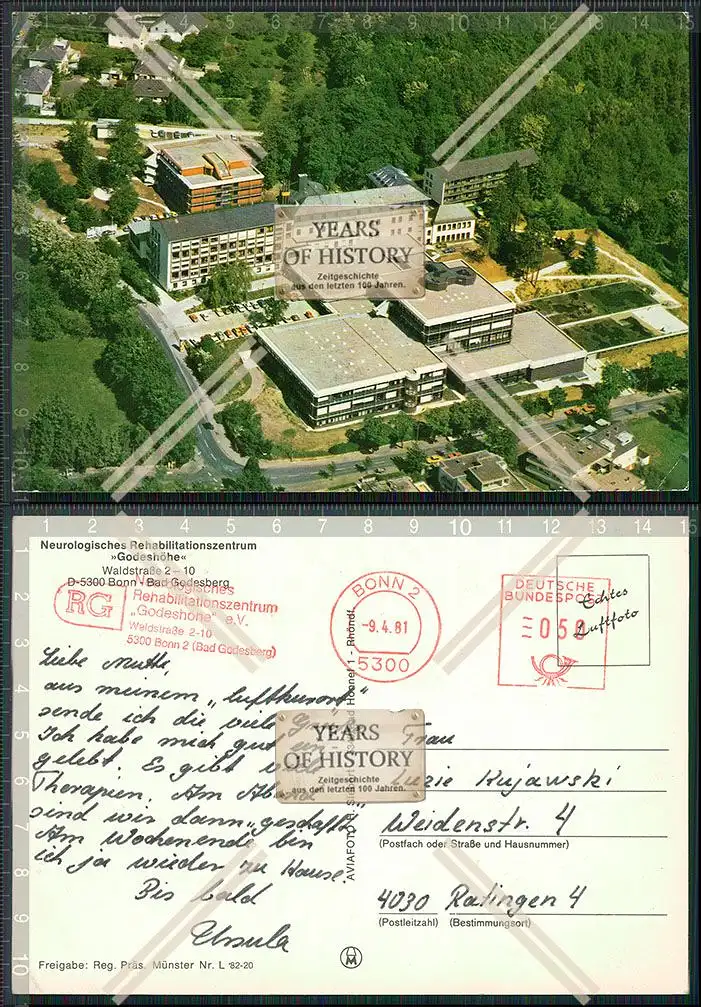 YEARS
OF HISTORY
Zeitgeschichte
aus den letzten 100 Jahren.
Neurologisches Rehabilitationszentrum
»Godeshöhe«
Waldstraße 2–10
D-5300 Bonn - Bad Godesberg
RG
Neurologisches
Rehabilitationszentrum
„Godeshöhe" e.V.
Waldstraße 2-10
5300 Bonn 2 (Bad Godesberg)
BONN 2
-9.4.81
5300
DEUTSCHE
BUNDESPOST
058
Echtes
Luftfoto
Liebe Mutti,
aus meinem „Luftkurort"
sende ich dir viele
Ich habe mich gut ein-
gelebt. Es gibt viele
Therapien. Am Abend
sind wir dann „geschafft".
Am Wochenende bin
ich ja wieder zu Hause.
Bis bald
Ursula
AVIAFOTO
Honnef 1 - Rhöndf.
YEARS
OF HISTORY
Zeitgeschichte
aus den letzten 100 Jahren.
Frau
Luzie Kujawski
Weidenstr. 4
(Postfach oder Straße und Hausnummer)
4030 Ratingen 4
(Postleitzahl) (Bestimmungsort)
Freigabe: Reg. Präs. Münster Nr. L '82-20